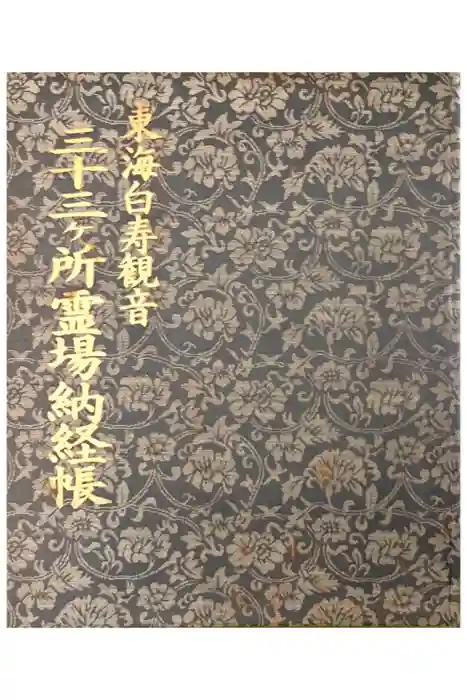 東海白寿観音
三十三ヶ所霊場納経帳